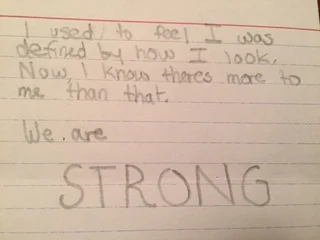 I used to feel I was
defined by how I look.
Now, I know theres more to
me than that.
We are
STRONG